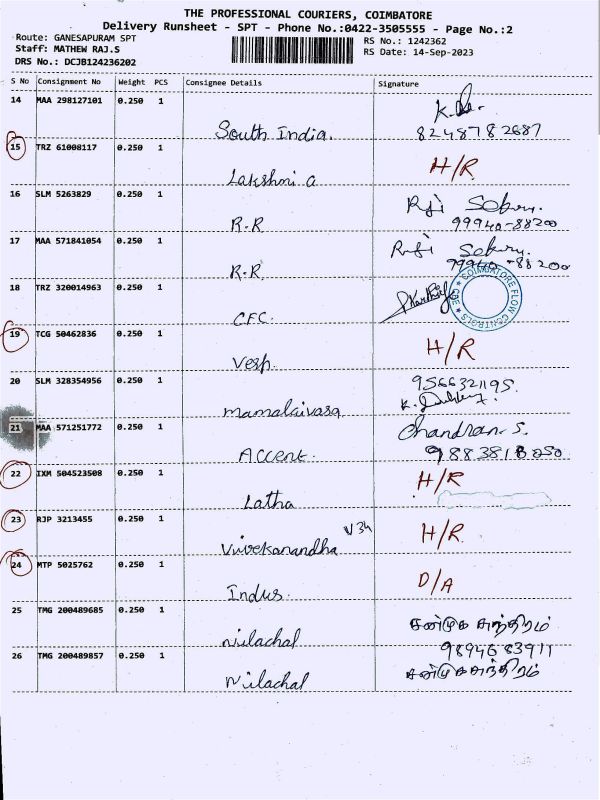 THE PROFESSIONAL COURIERS, COIMBATORE
Delivery Runsheet - SPT - Phone No.:0422-3505555 - Page No.:2
Route: GANESAPURAM SPT
Staff: MATHEW RAJ.S
DRS No.: DCJB124236202
RS No.: 1242362
RS Date: 14-Sep-2023
S No Consignment No Weight PCS Consignee Details Signature
14 MAA 298127101 0.250 1
South India. 8248782687
15 TRZ 61008117 0.250 1 H/R
Lakshmi a
16 SLM 5263829 0.250 1
R.R 99940-88200
17 MAA 571841054 0.250 1
R.R. 99940-88200
18 TRZ 320014963 0.250 1
CFC. COIMBATORE FLOW CONTROLS ★ CBE ★
19 TCG 50462836 0.250 1 H/R
Vesp.
20 SLM 328354956 0.250 1 9566321195.
mamalaivasa
21 MAA 571251772 0.250 1 Chandran. S.
Accent.
22 IXM 504523508 0.250 1 H/R
Latha
23 RJP 3213455 0.250 1 H/R
Vivekanandha V34
24 MTP 5025762 0.250 1 D/A
Indus.
25 TMG 200489685 0.250 1 சண்முக சுந்திரம்
nilachal 9894683911
26 TMG 200489857 0.250 1 சண்முகசுந்திரம்
Nilachal